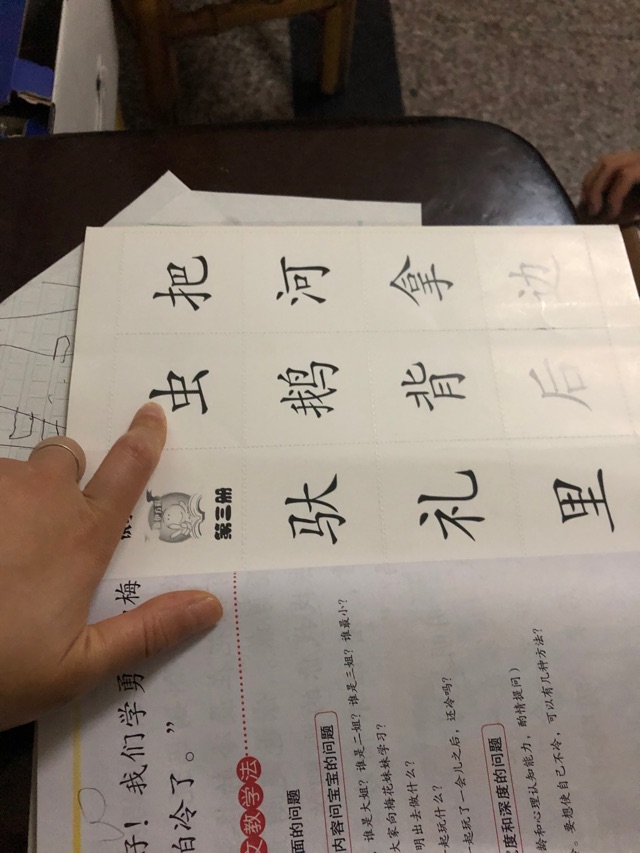 好！我们学勇
梅
怕冷了。”
文教学法
面的问题
内容问宝宝的问题
谁是大姐？谁是二姐？谁是三姐？谁最小？
大家向梅花妹妹学习？
明出去做什么？
一起玩什么？
一起玩了一会儿之后，还冷吗？
度和深度的问题
龄和心理认知能力，酌情提问）
。要想使自己不冷，可以有几种方法？
第三册
虫 把
驮 鹅 河
礼 背 拿
里 后 边